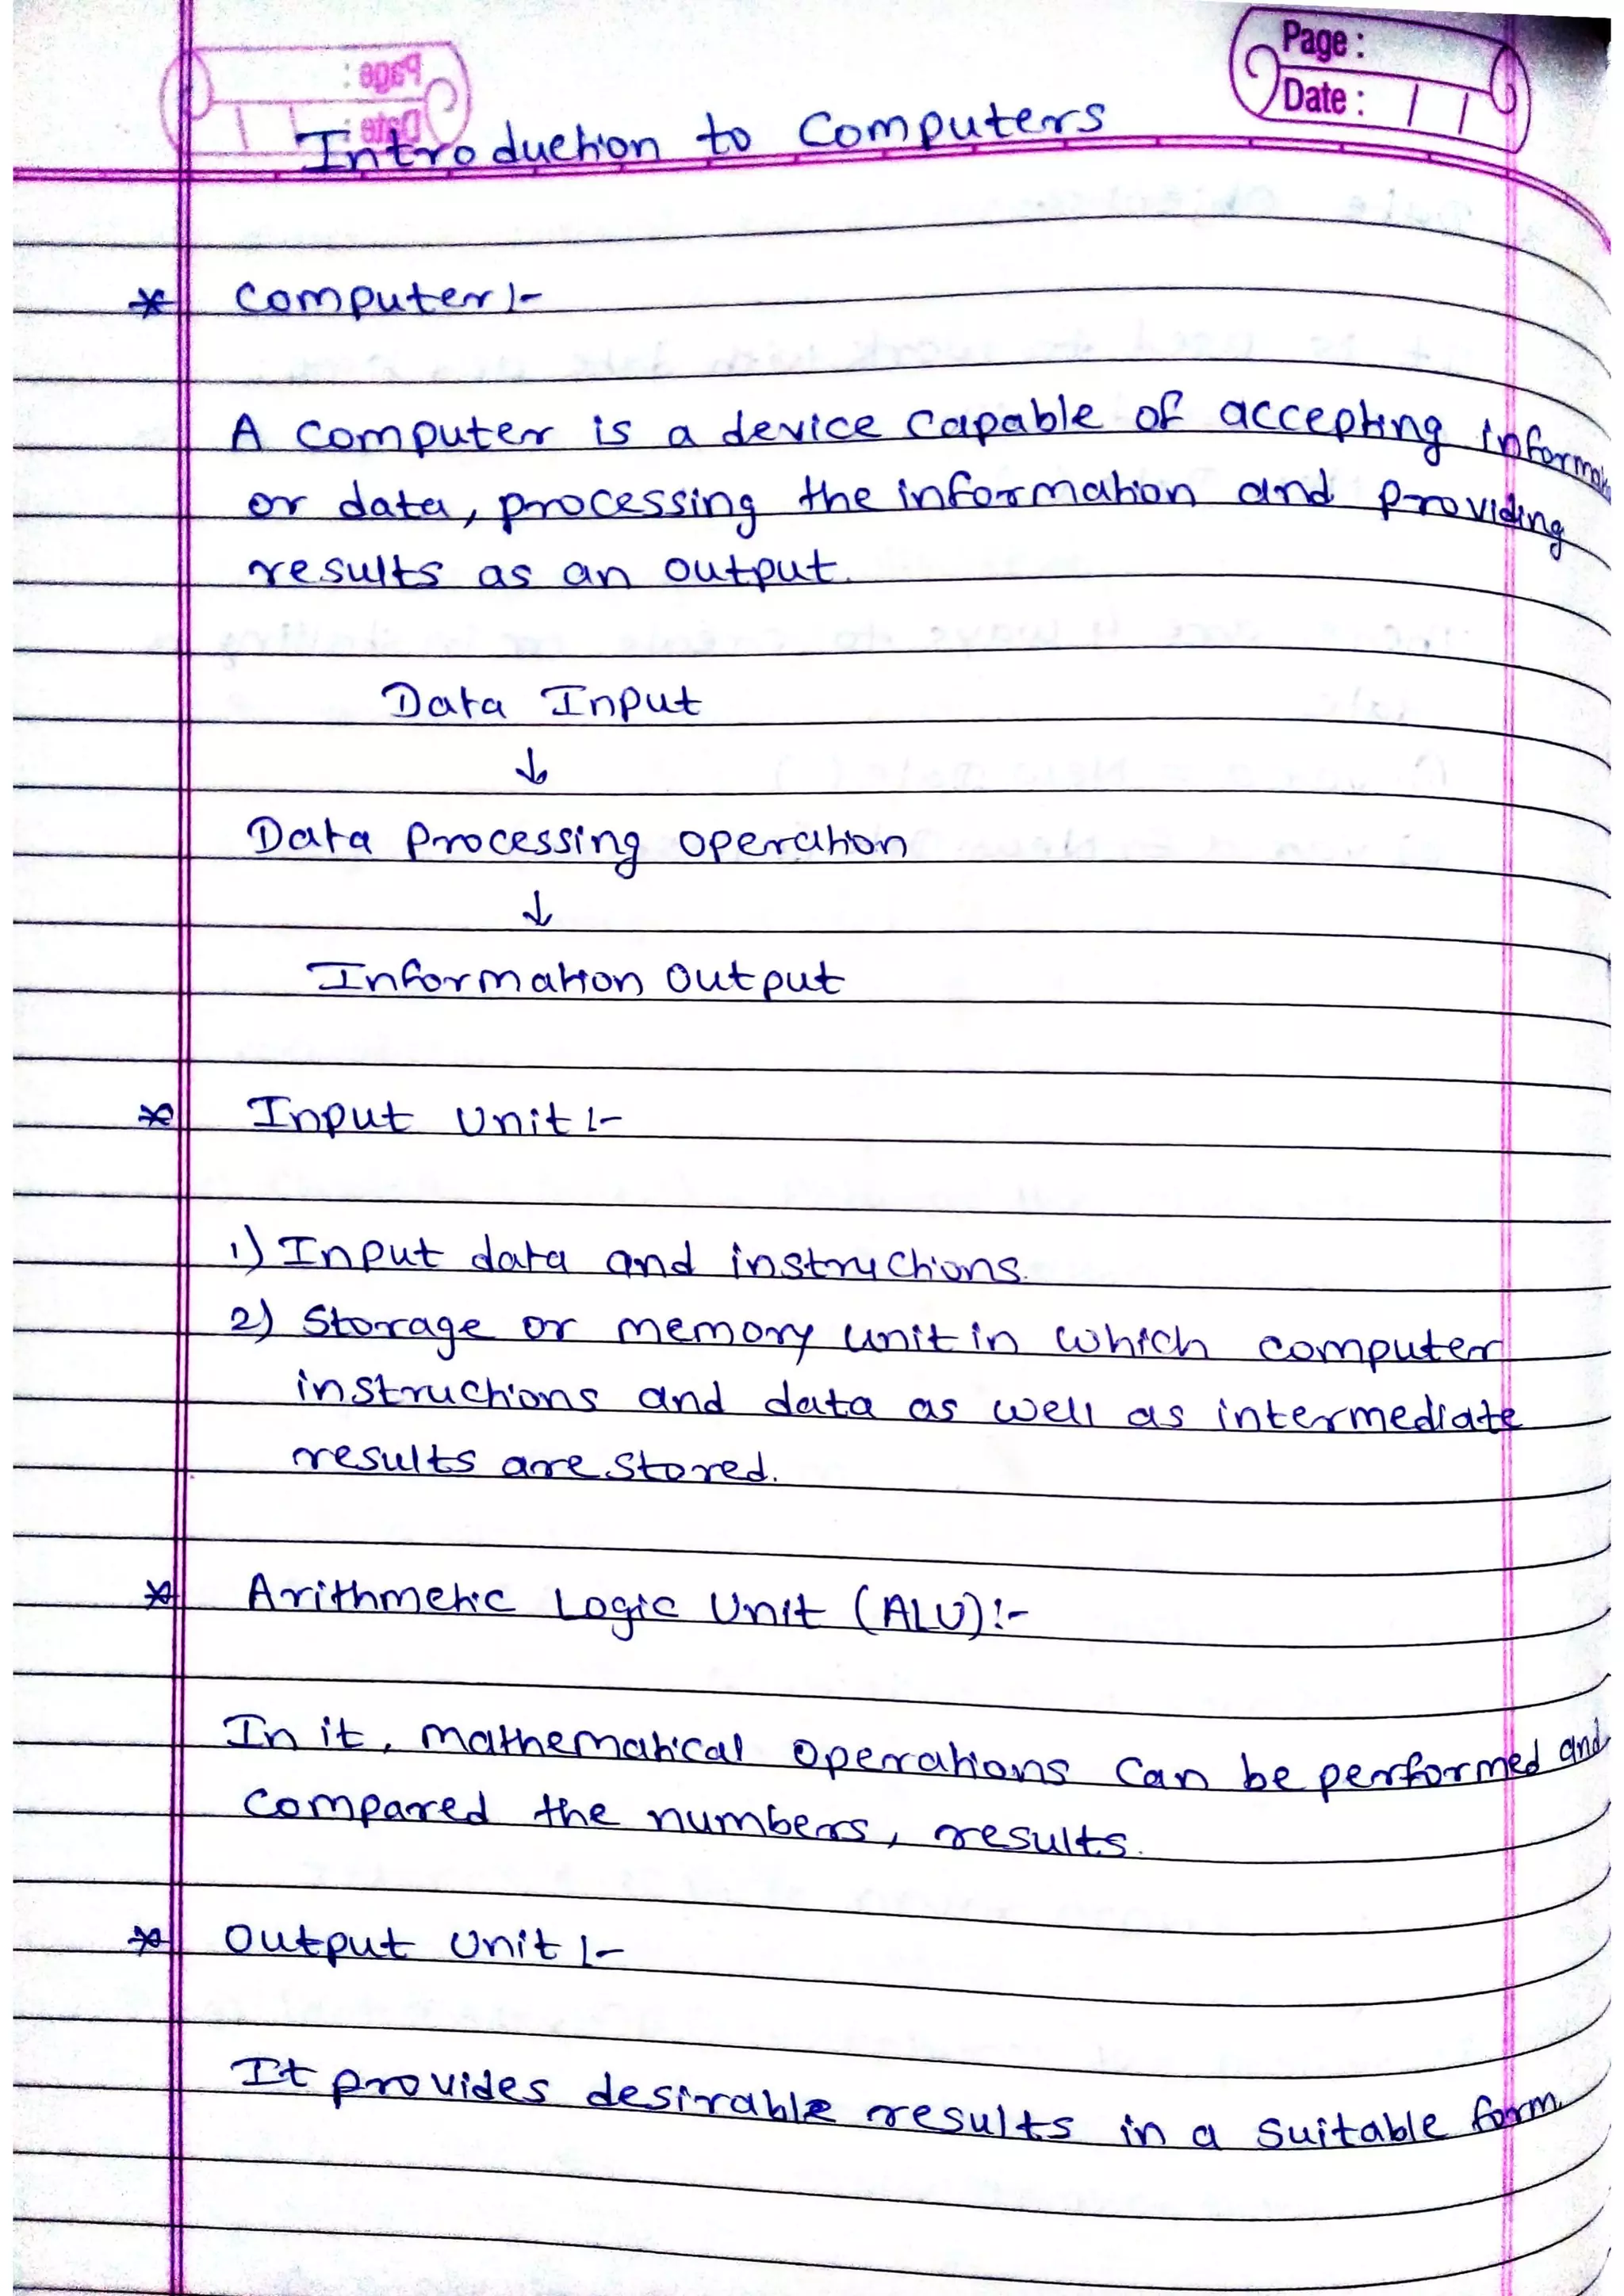 Page :
Date :
Introduction to Computers
* Computer :-
A computer is a device capable of accepting information
or data, processing the information and providing
results as an output.
Data Input
↓
Data Processing operation
↓
Information Output
* Input Unit :-
1) Input data and instructions.
2) Storage or memory unit in which computer
instructions and data as well as intermediate
results are stored.
* Arithmetic Logic Unit (ALU) :-
In it, mathematical operations can be performed and
compared the numbers, results.
* Output Unit :-
It provides desirable results in a suitable form.